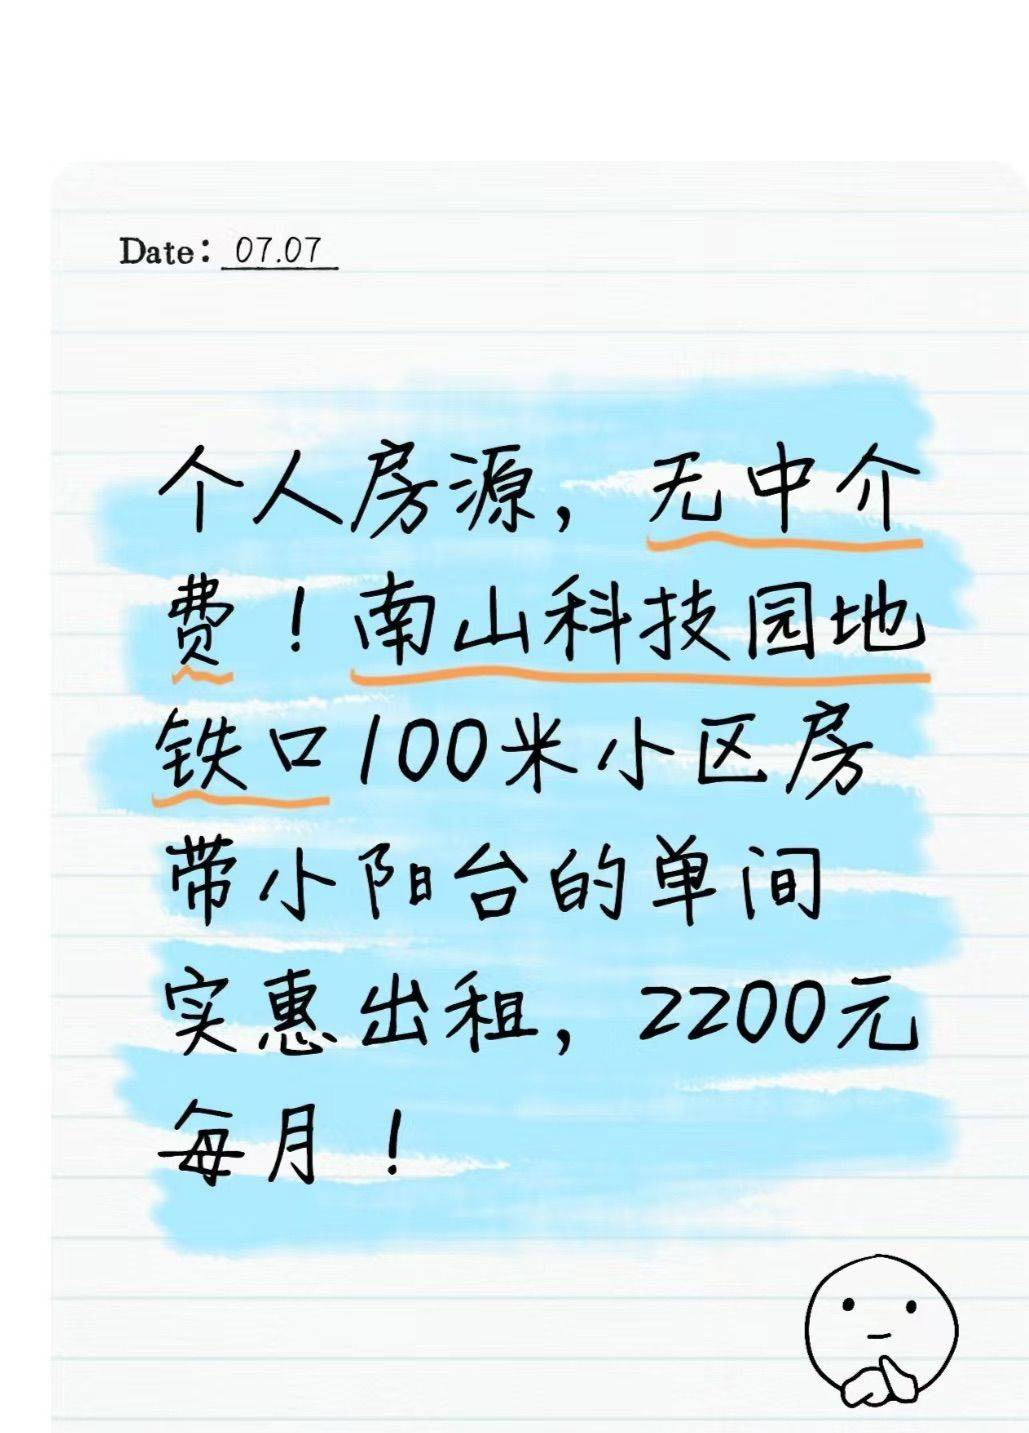 Date: 07.07
个人房源，无中介
费！南山科技园地
铁口100米小区房
带小阳台的单间
实惠出租，2200元
每月！